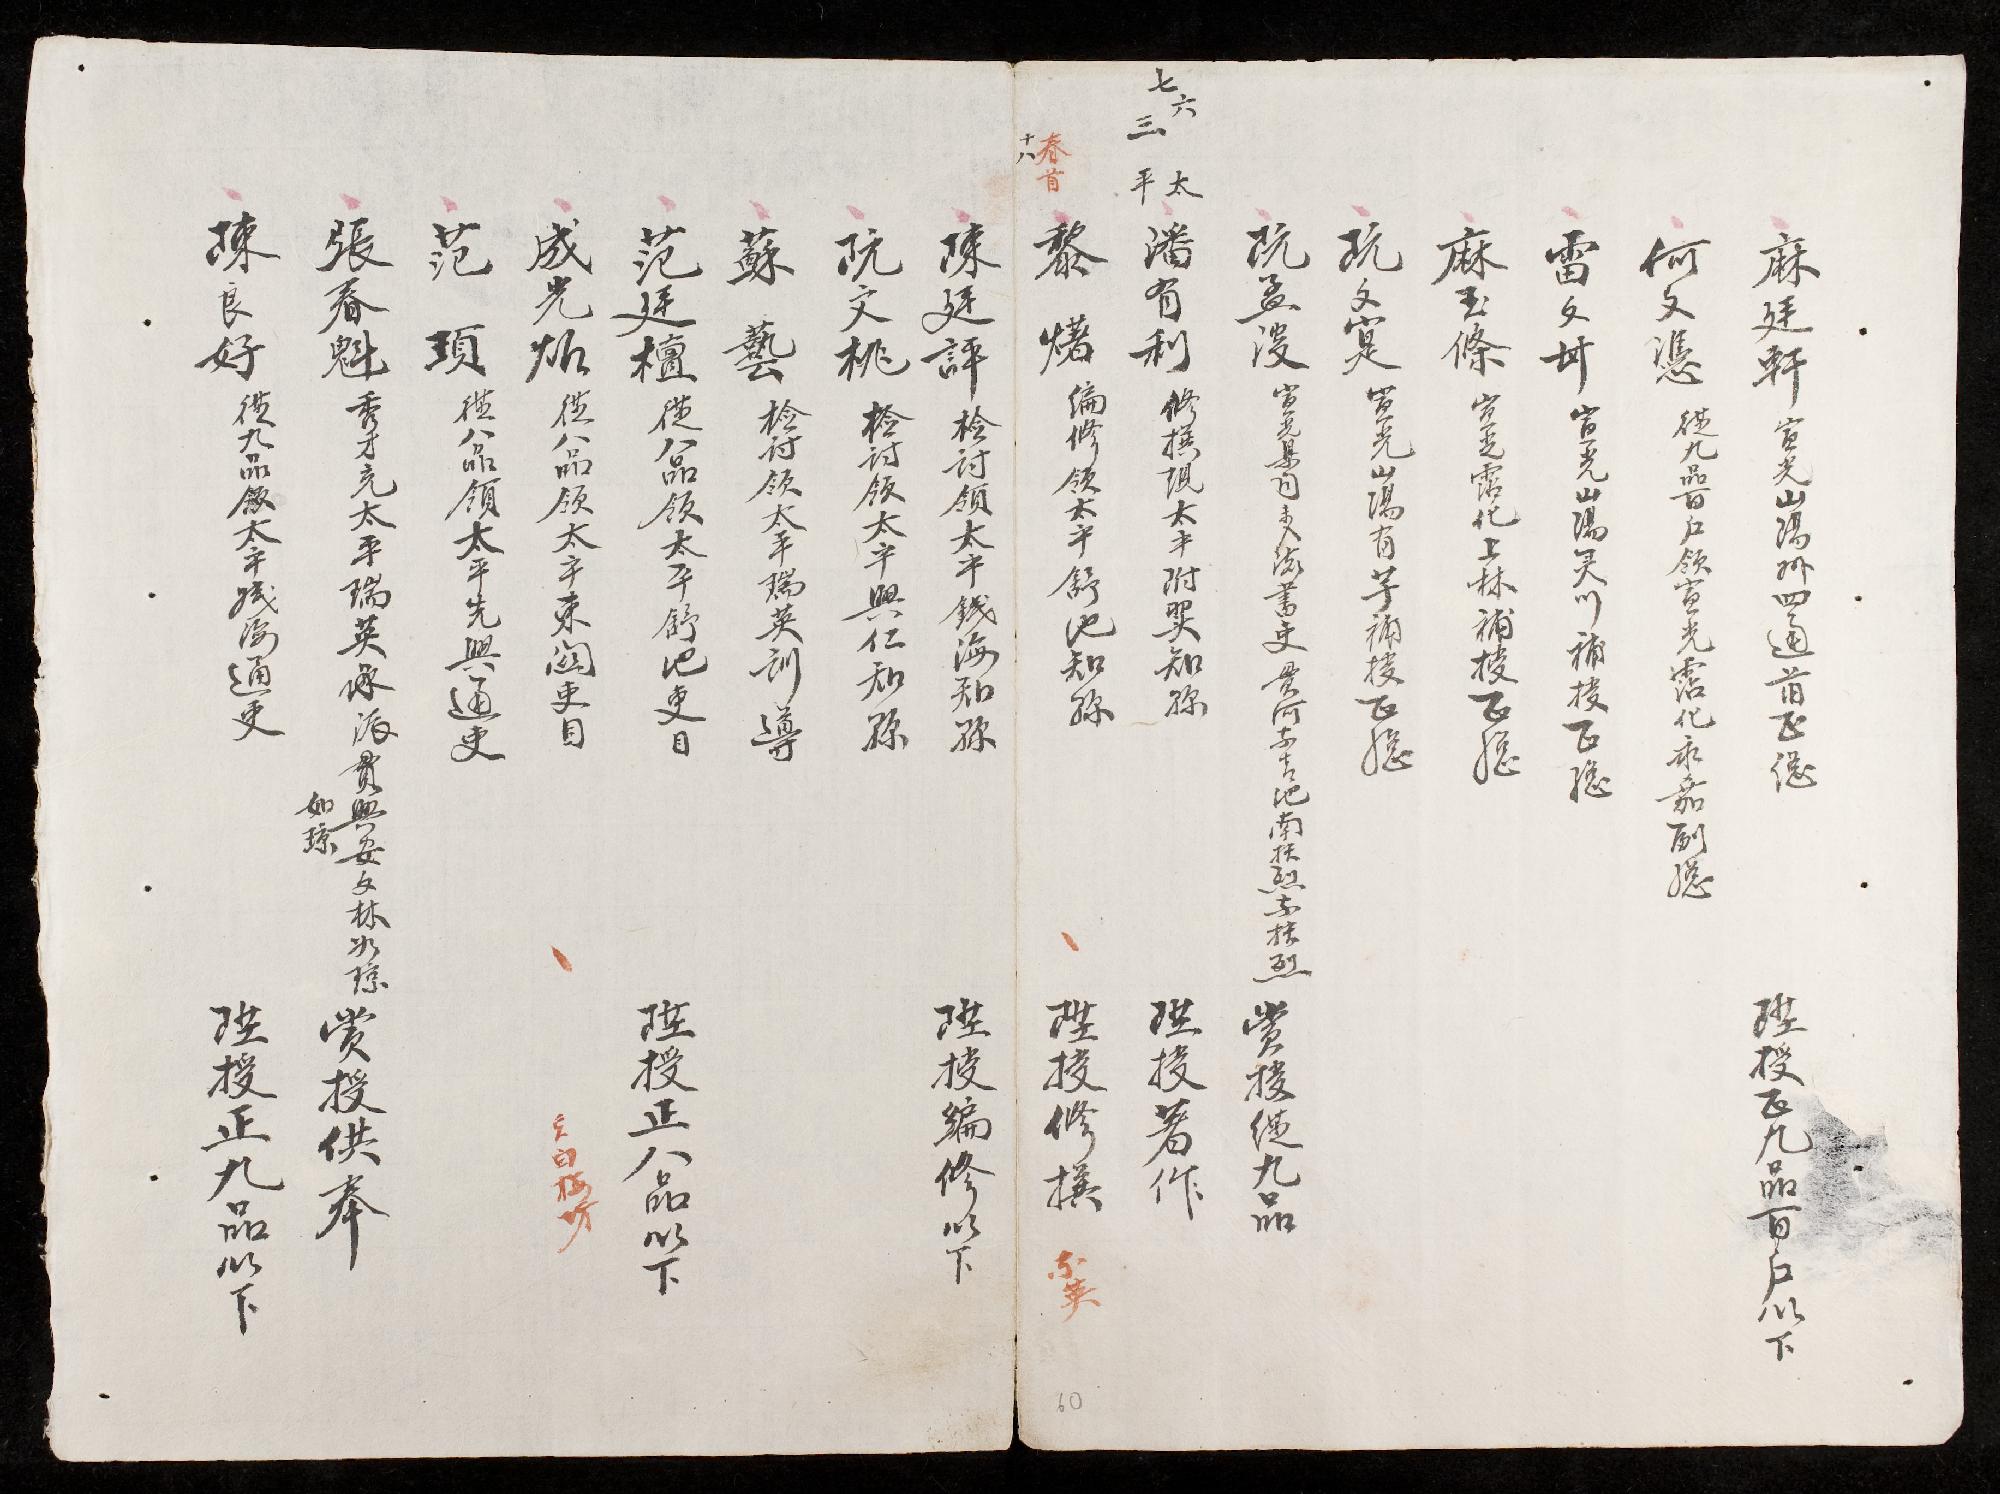 麻廷軒 宣光山陽州四通前正總 陞授正九品百户以下
何文憑 從九品百户領宣光霑化永嘉副總
雷文 宣光山陽灵川補授正總
麻玉條 宣光霑化上林補授正總
阮文寔 宣光山陽有芋補授正總
阮孟 宣光 吏 貫河 南扶烈 扶烈 賞授從九品
七六
三
太平
潘有利 修撰 太平附翼知縣 陞授著作
春首
十八
黎㷮 編修領太平舒池知縣 陞授修撰
陳廷評 檢討領太平錢海知縣 陞授編修以下
阮文桃 檢討領太平興仁知縣
蘇藝 檢討領太平瑞英訓導
范廷檀 從八品領太平舒池吏目 陞授正八品以下
成光 從八品領太平東関吏目
范頊 從八品領太平先興通吏
張春魁 秀才充太平瑞英承派貫興安文林如琼 賞授供奉
如琼
陳良好 從九品領太平錢海通吏 陞授正九品以下
60